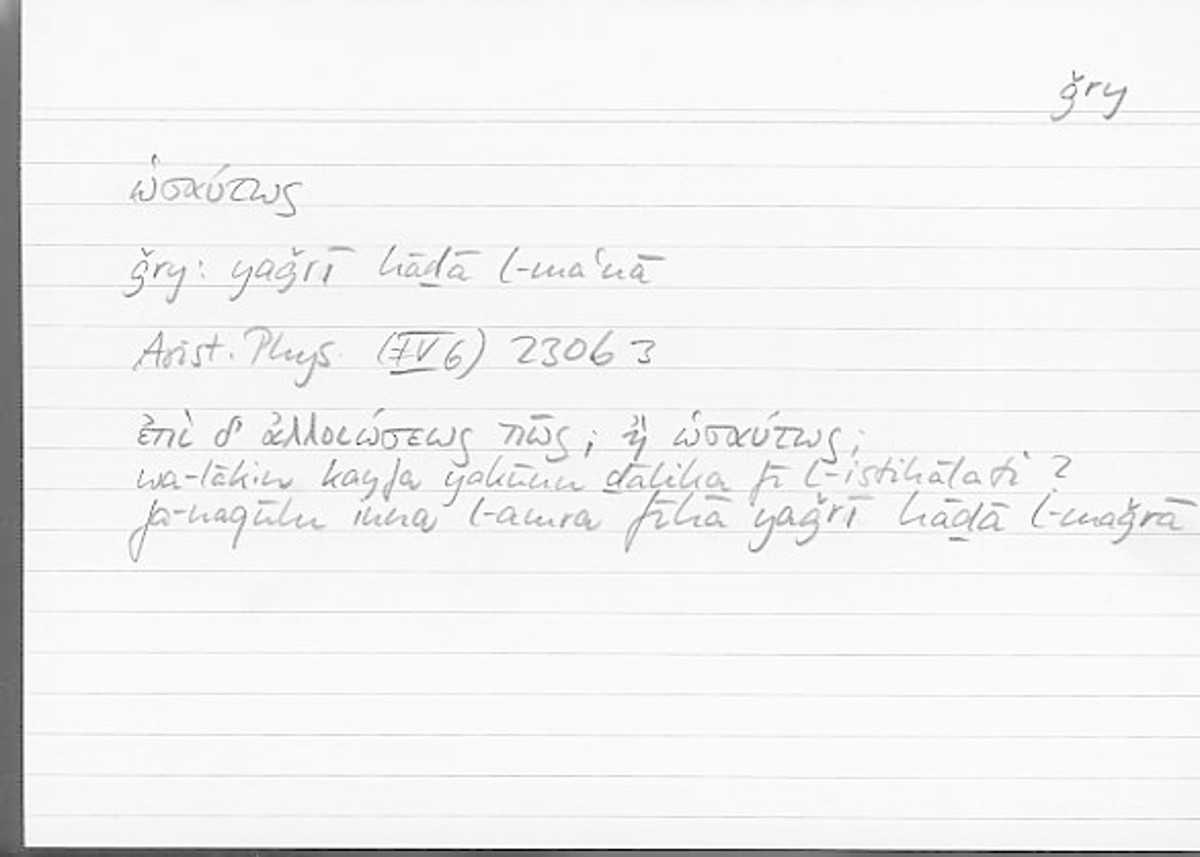 ǧry
ὡσαύτως
ǧry: yaǧrī hāḏā l-maʿnā
Arist. Phys. (IV 6) 230b 3
ἐπὶ δ' ἀλλοιώσεως πῶς; ἢ ὡσαύτως;
wa-lākin kayfa yakūnu ḏālika fī l-istiḥālati?
fa-naqūlu inna l-amra fīhā yaǧrī hāḏā l-maǧrā